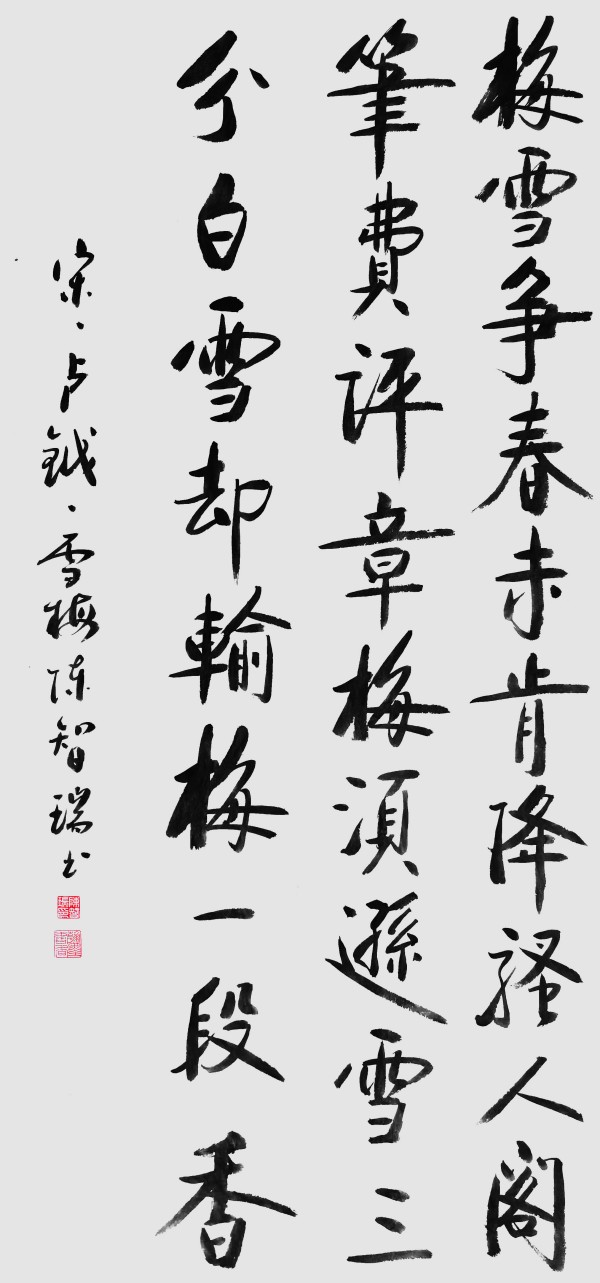 梅雪争春未肯降骚人阁
筆費評章梅須遜雪三
分白雪却輸梅一段香
宋、卢鉞、雪梅陈智瑞书